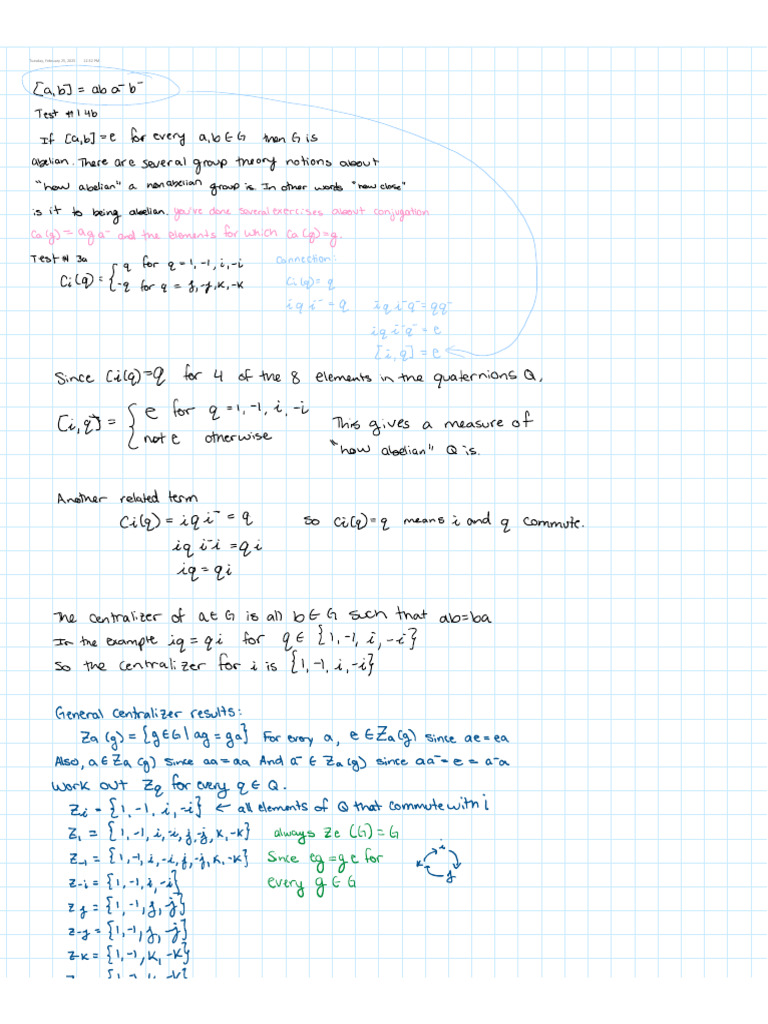 Tuesday, February 25, 2020 12:52 PM
[a,b] = ab a⁻ b⁻
Test #1 4b
If [a,b]=e for every a,b∈G then G is
abelian. There are several group theory notions about
"how abelian" a nonabelian group is. In other words "how close"
is it to being abelian. you've done several exercises about conjugation
Ca(g) = aga⁻ and the elements for which Ca(g)=g.
Test #1 3a
Ci(q) = { q for q = 1, -1, i, -i
-q for q = j, -j, k, -k
Connection:
Ci(q) = q
i q i⁻ = q
i q i⁻ q⁻ = q q⁻
i q i⁻ q⁻ = e
[i, q] = e
Since Ci(q) = q for 4 of the 8 elements in the quaternions Q,
[i, q] = { e for q = 1, -1, i, -i
not e otherwise
This gives a measure of
"how abelian" Q is.
Another related term
Ci(q) = i q i⁻ = q
i q i⁻ i = q i
iq = qi
so Ci(q) = q means i and q commute.
The centralizer of a∈G is all b∈G such that ab=ba
In the example iq = qi for q ∈ {1, -1, i, -i}
So the centralizer for i is {1, -1, i, -i}
General centralizer results:
Za(g) = {g∈G | ag = ga} For every a, e∈Za(g) since ae=ea
Also, a∈Za(g) since aa=aa And a⁻∈Za(g) since aa⁻=e=a⁻a
Work out Zq for every q∈Q.
Zi = {1, -1, i, -i} ← all elements of Q that commute with i
Z1 = {1, -1, i, -i, j, -j, k, -k}
Z-1 = {1, -1, i, -i, j, -j, k, -k}
Z-i = {1, -1, i, -i}
Zj = {1, -1, j, -j}
Z-j = {1, -1, j, -j}
Z-k = {1, -1, k, -k}
always Ze(G) = G
Since eg = ge for
every g∈G
i
k
j